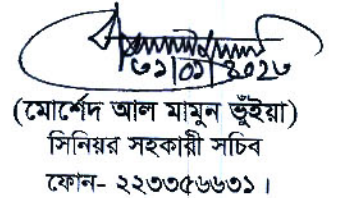 ৩১|০১|২০২৩
(মোর্শেদ আল মামুন ভূঁইয়া)
সিনিয়র সহকারী সচিব
ফোন- ২২৩৩৫৬৬৩১।